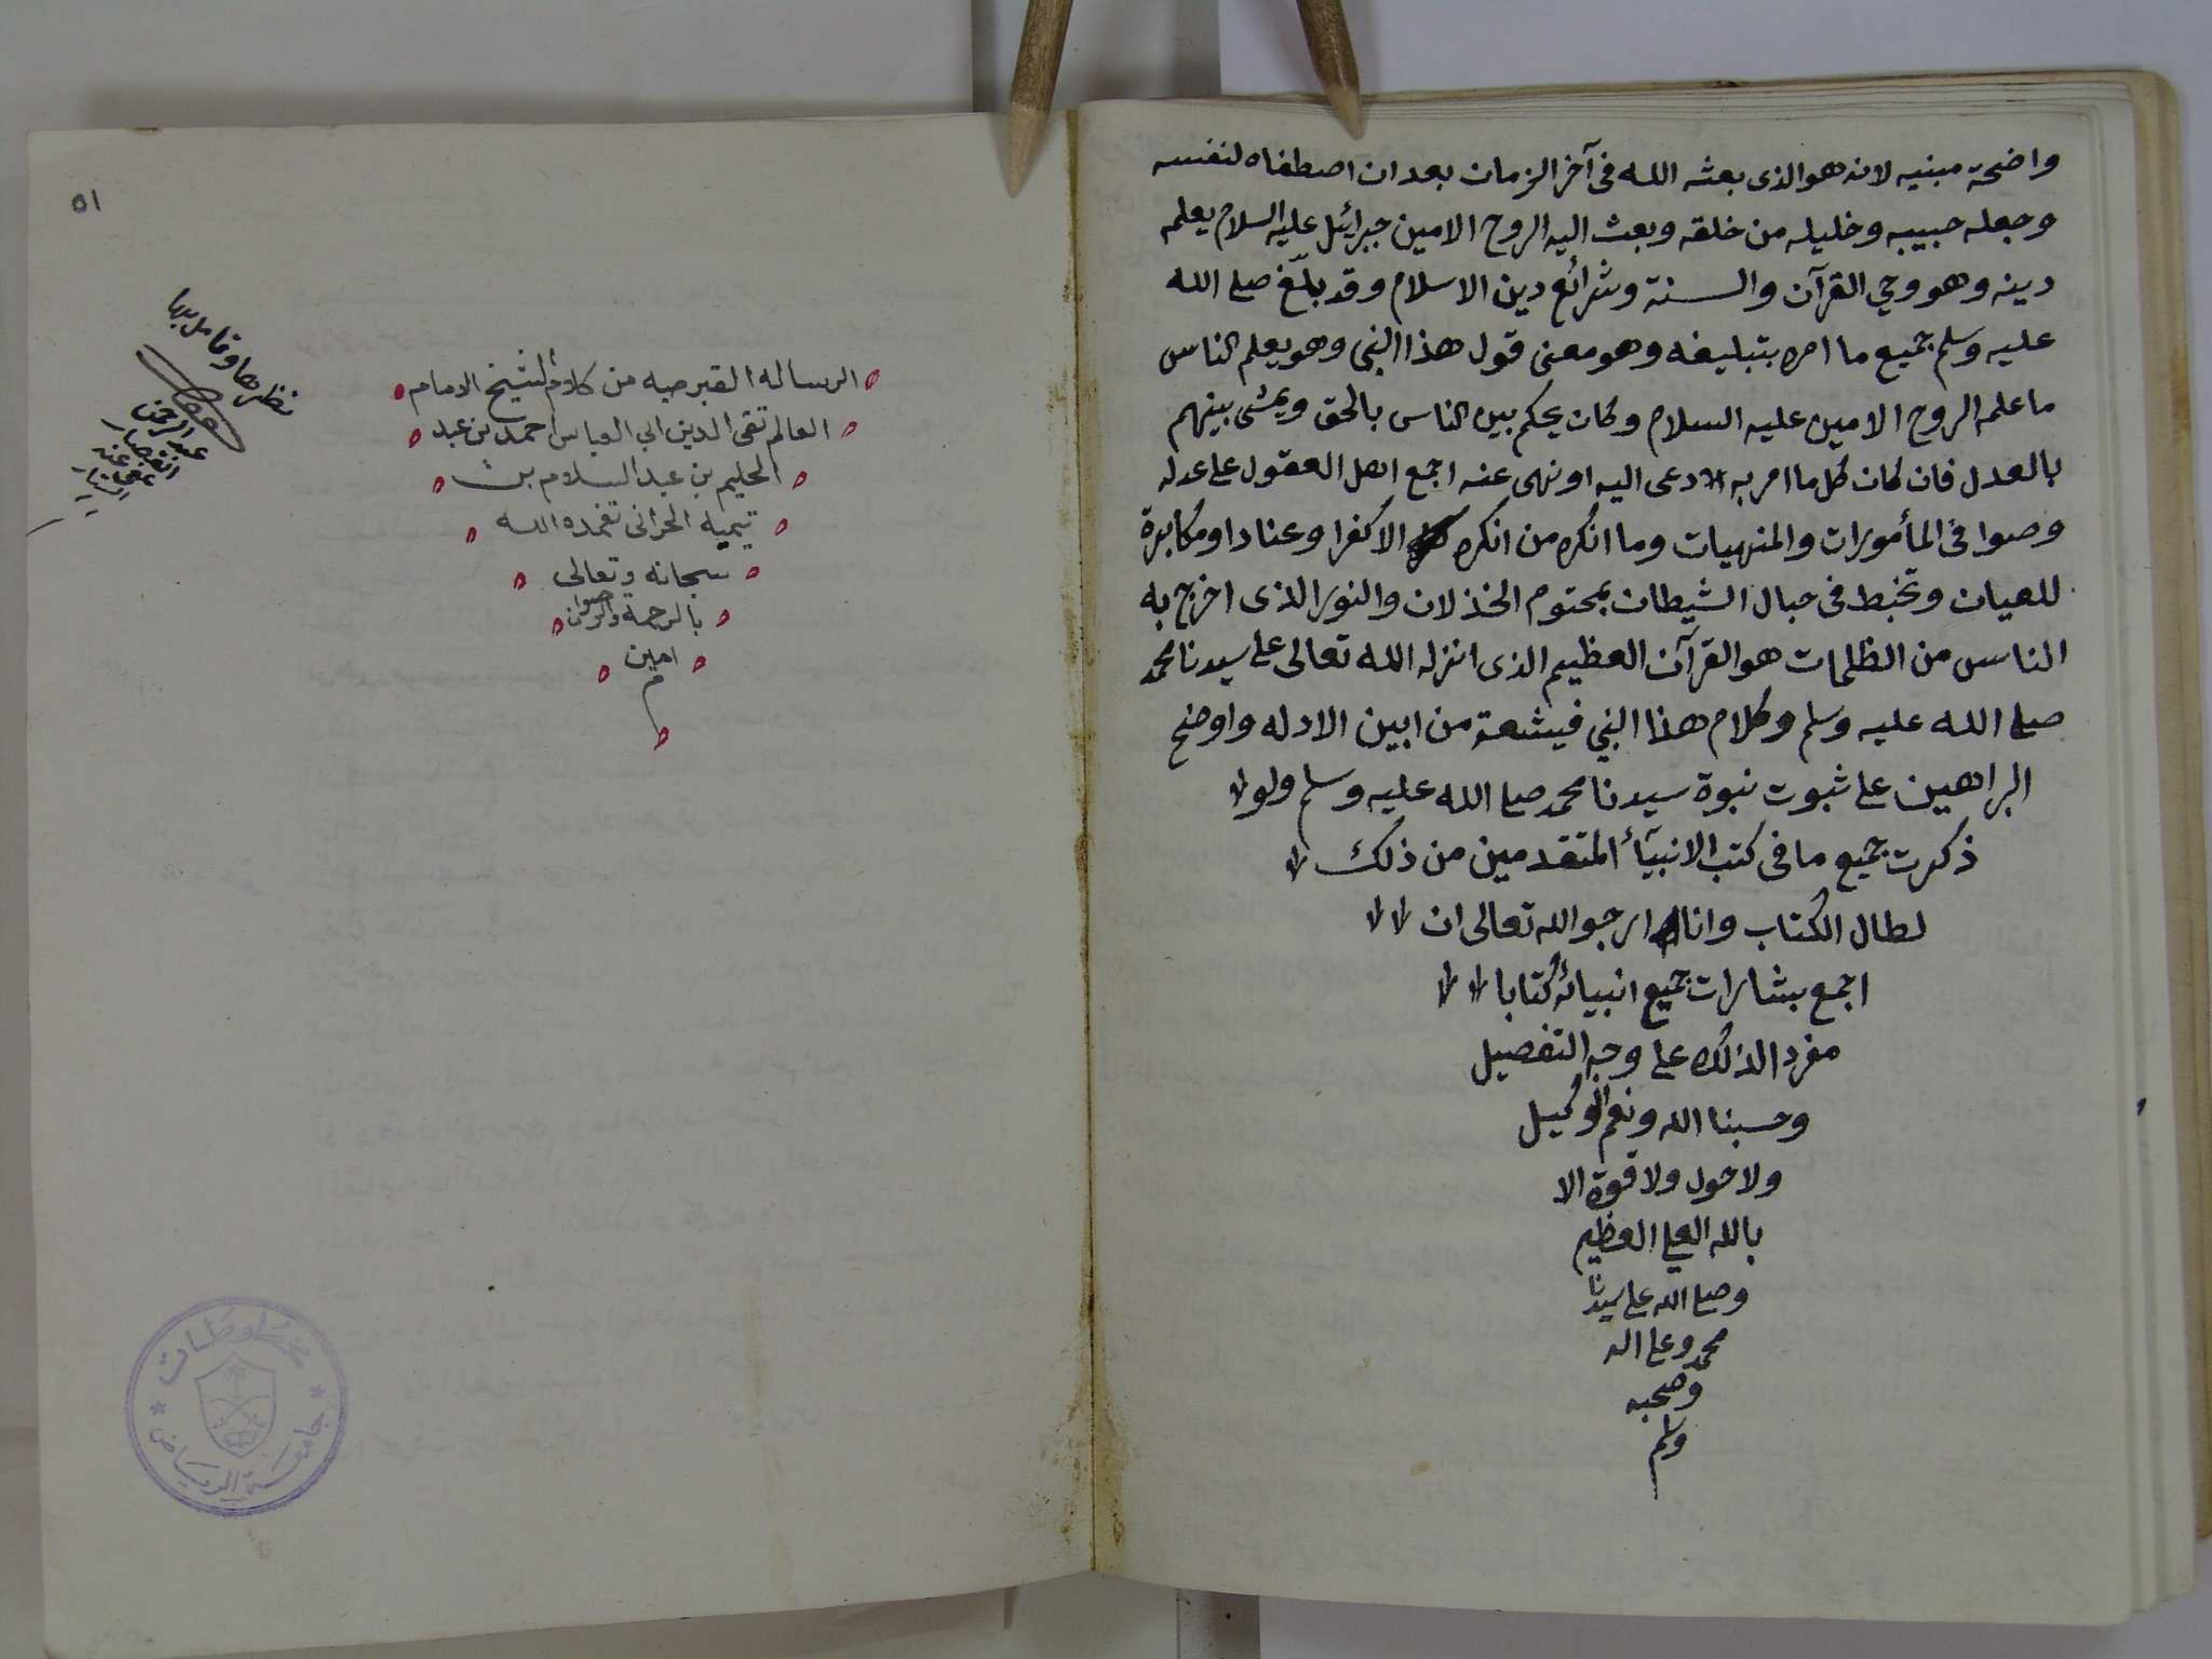 واضحة مبنيه لانه هو الذى بعثه الله فى آخر الزمان بعد ان اصطفاه لنفسه
وجعله حبيبه وخليله من خلقه وبعث اليه الروح الامين جبرائيل عليه السلام يعلمه
دينه وهو وحي القرآن والسنة وشرائع دين الاسلام وقد بلّغ صلى الله
عليه وسلم جميع ما امره بتبليغه وهو معنى قول هذا النبى وهو يعلم الناس
ما علمه الروح الامين عليه السلام وكان يحكم بين الناس بالحق ويمشى بينهم
بالعدل فان كان كل ما امر به دعى اليه او نهى عنه اجمع اهل العقول على عدله
وصوا فى المأمورات والمنهيات وما انكره من انكره الا كفرا وعنادا ومكابرة
للعيان وتخبط فى حبال الشيطان بمحتوم الخذلان والنور الذى اخرج به
الناس من الظلمات هو القرآن العظيم الذى انزله الله تعالى على سيدنا محمد
صلى الله عليه وسلم وكلام هذا النبي فيشعة من ابين الادله واوضح
البراهين على ثبوت نبوة سيدنا محمد صلى الله عليه وسلم ولو
ذكرت جميع ما فى كتب الانبيآء المتقدمين من ذلك
لطال الكتاب وانا ارجو الله تعالى ان
اجمع بشارات جميع انبيائه كتابا
مفردا لذلك على وجه التفصيل
وحسبنا الله ونعم الوكيل
ولا حول ولا قوة الا
بالله العلى العظيم
وصلى الله على سيدنا
محمد وعلى اله
وصحبه
وسلم
٥١
الرساله القبرصيه من كلام الشيخ الامام
العالم تقى الدين ابي العباس احمد بن عبد
الحليم بن عبد السلام بن
تيميه الحرانى تغمده الله
سبحانه وتعالى
بالرحمة والرضوان
امين
م
نظر بها وتامل بها
عبد الرحمن
عفى عنه
مخطوطات
جامعة الرياض